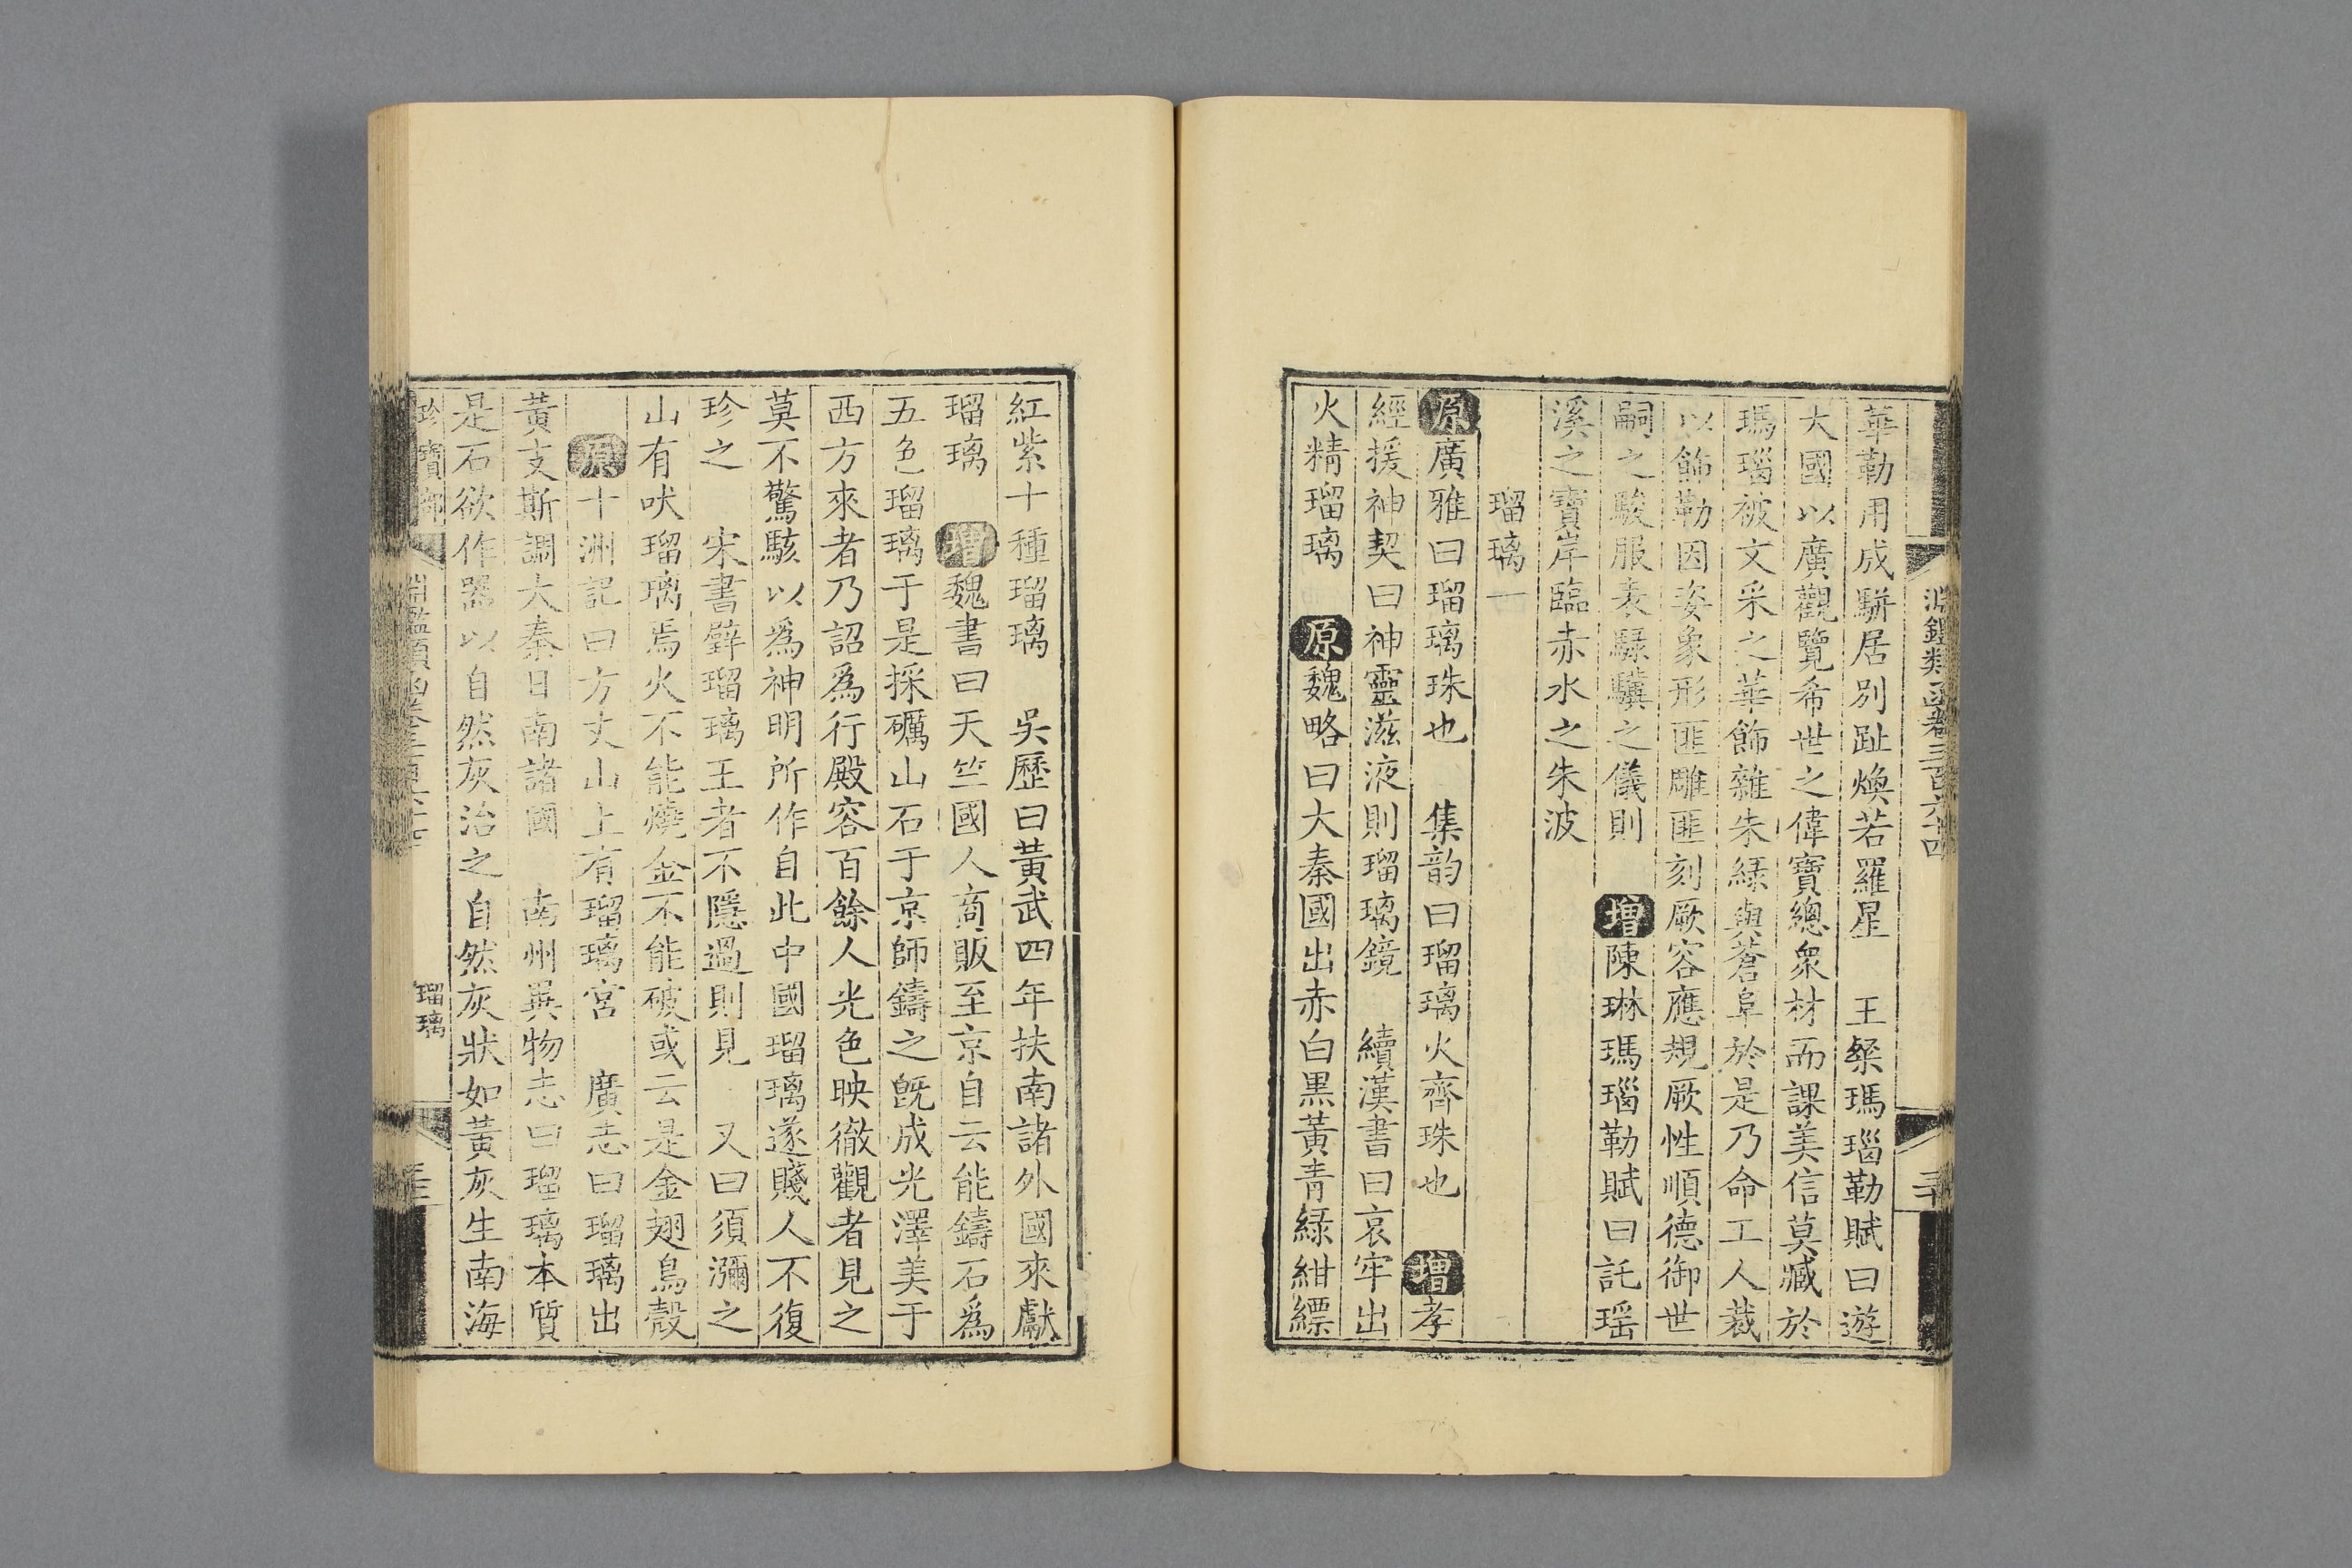 淵鑑類函卷三百六十四
華勒用成駢居別趾煥若羅星　王粲瑪瑙勒賦曰遊
大國以廣觀覽希世之偉寶總衆材而課美信莫臧於
瑪瑙被文采之華飾雜朱緑與蒼阜於是乃命工人裁
以飾勒因姿象形匪雕匪刻厥容應規厥性順德御世
嗣之駿服表騄驥之儀則　增陳琳瑪瑙勒賦曰託瑶
溪之寶岸臨赤水之朱波
瑠璃一
原廣雅曰瑠璃珠也　集韵曰瑠璃火齊珠也　增孝
經援神契曰神靈滋液則瑠璃鏡　續漢書曰哀牢出
火精瑠璃　原魏略曰大秦國出赤白黒黃青緑紺縹
紅紫十種瑠璃　吳歷曰黃武四年扶南諸外國來獻
瑠璃　增魏書曰天竺國人商販至京自云能鑄石爲
五色瑠璃于是採礪山石于京師鑄之旣成光澤美于
西方來者乃詔爲行殿容百餘人光色映徹觀者見之
莫不驚駭以爲神明所作自此中國瑠璃遂賤人不復
珍之　宋書璧瑠璃王者不隱過則見　又曰須瀰之
山有吠瑠璃焉火不能燒金不能破或云是金翅鳥殼
原十洲記曰方丈山上有瑠璃宮　廣志曰瑠璃出
黃支斯調大秦日南諸國　南州異物志曰瑠璃本質
是石欲作器以自然灰治之自然灰狀如黃灰生南海
珍寶部
淵鑑類函卷三百六十
瑠璃